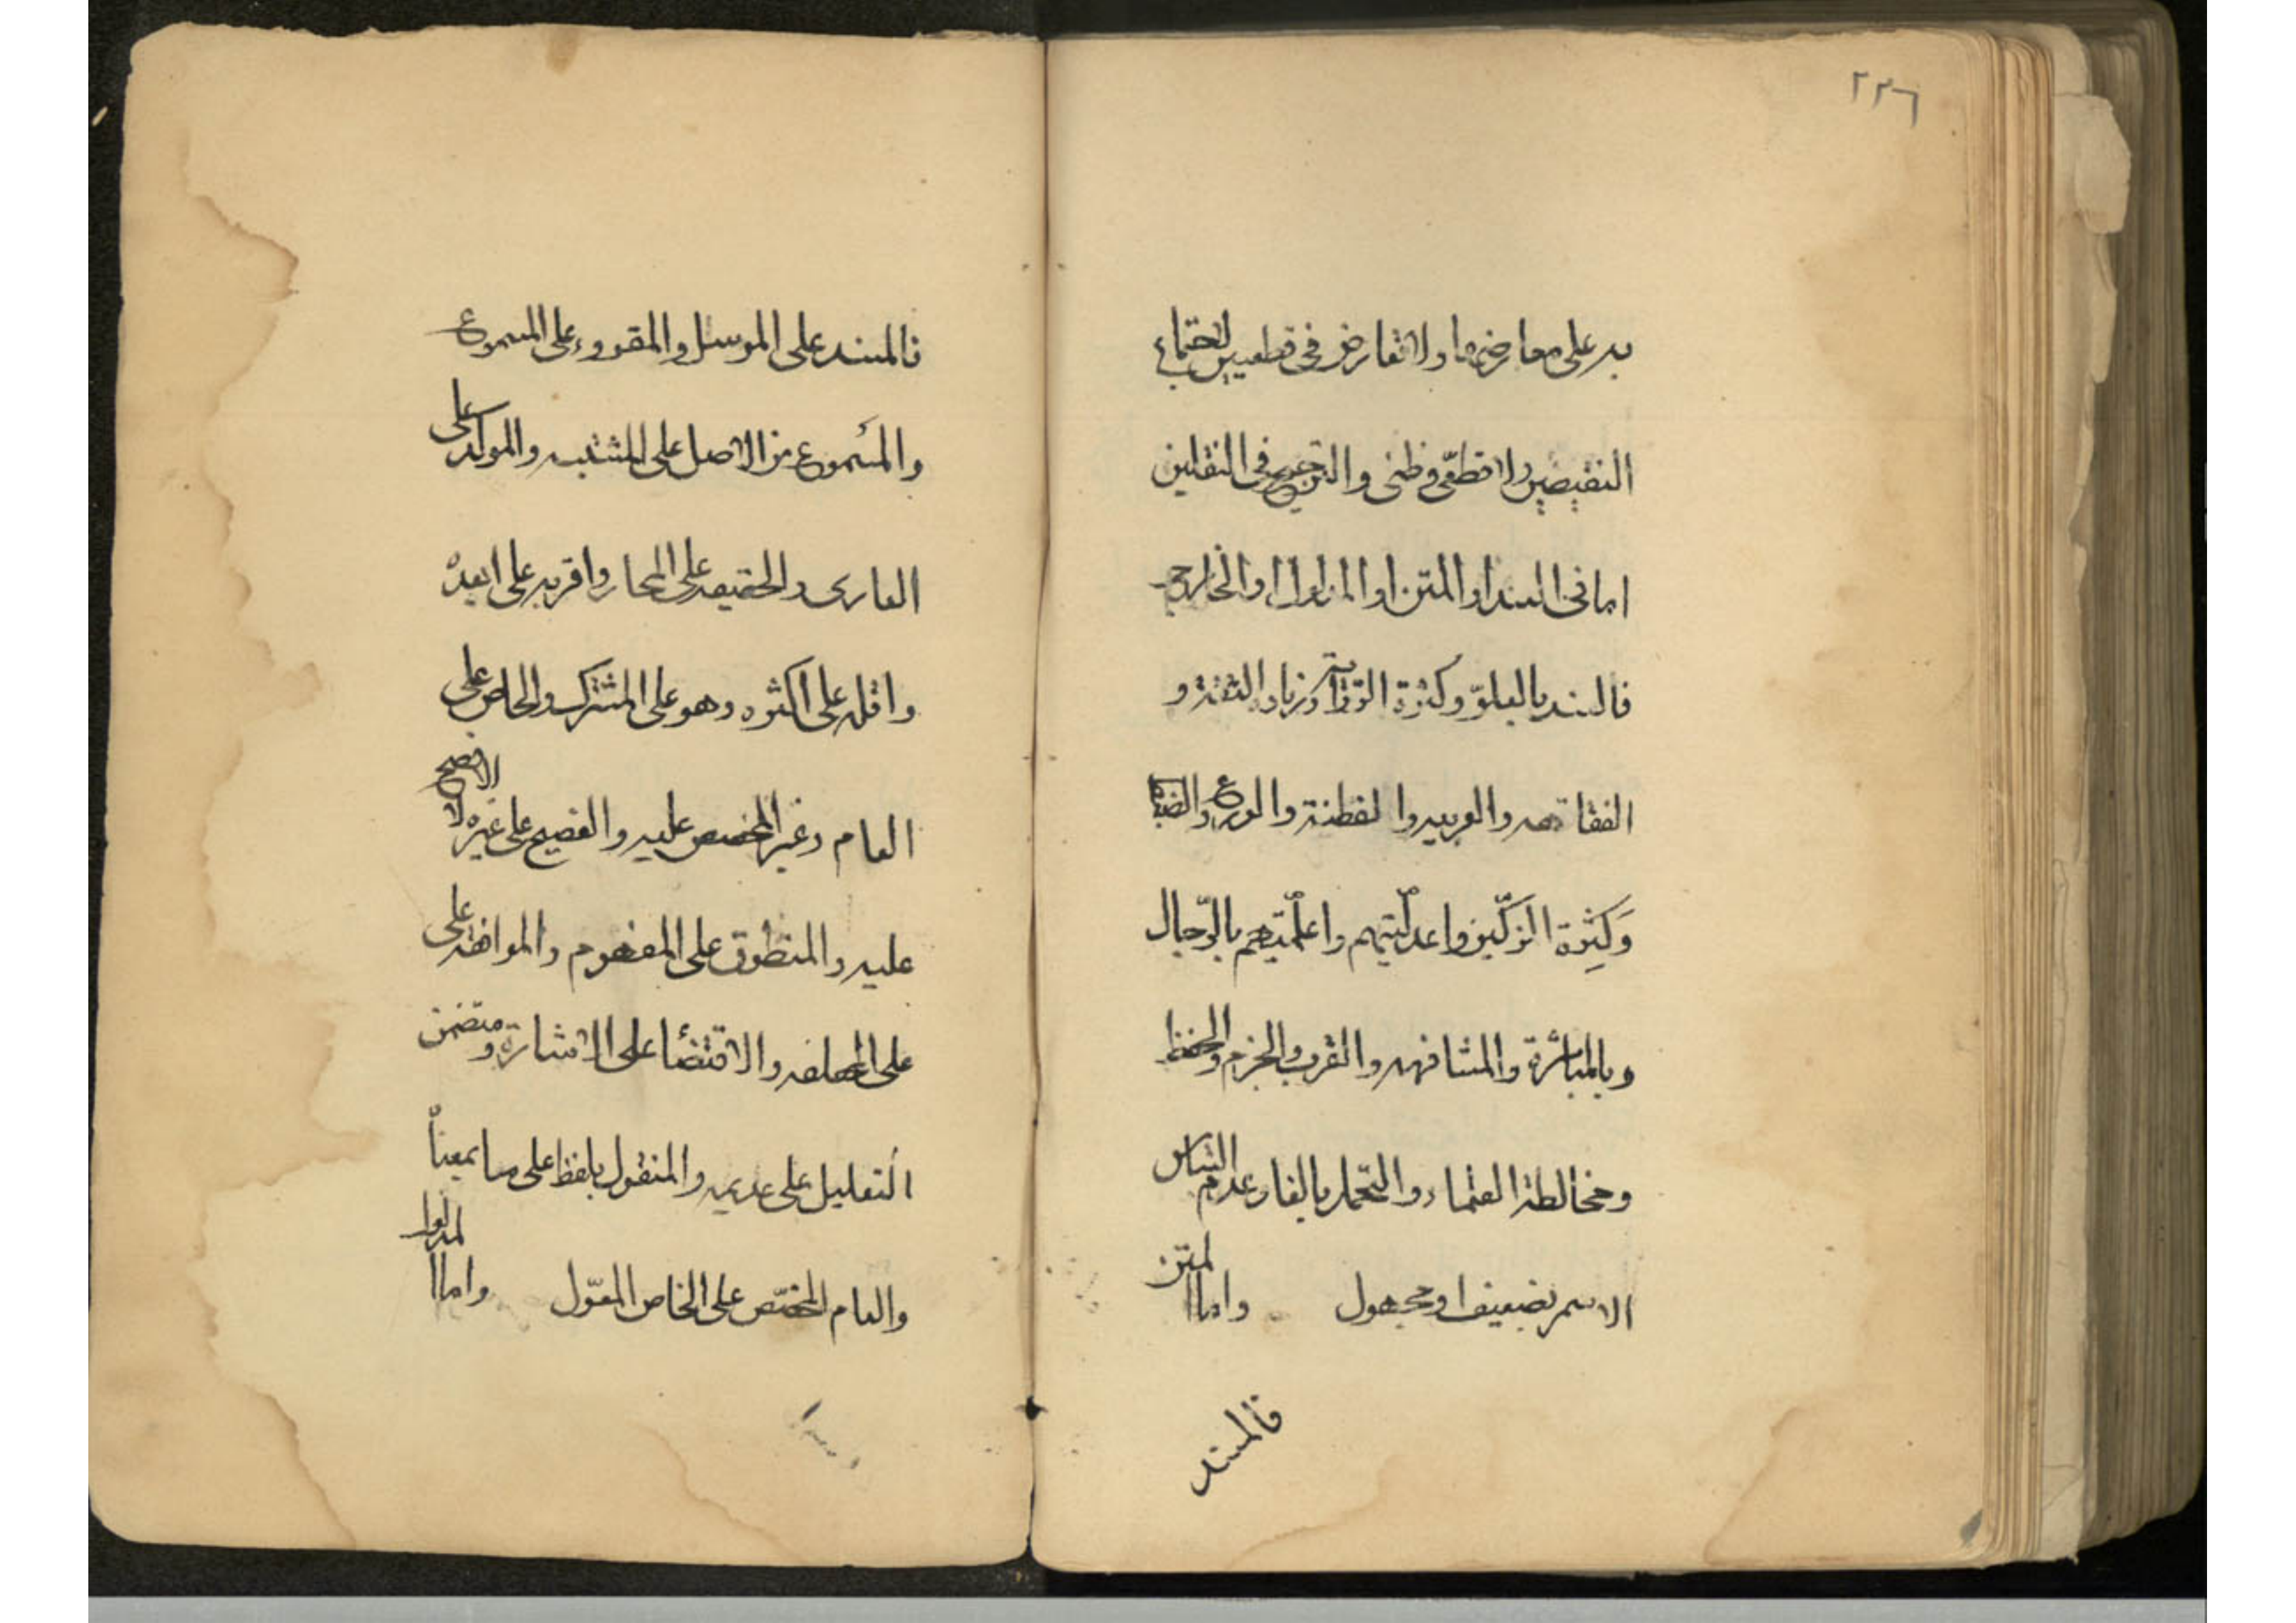 ٢٢٦
به على معارضها ولا تعارض فى قطعيين لاجتماع
النقيضين ولا قطعّى وظنى والترجيح فى النقلين
اما فى السند او المتن او المدلول او الخارج
فالسند بالعلوّ وكثرة الرّواة وزيادة الثقة و
الفقاهه والعربيه والفطنة والورع والضبط
وَكِثرة المزكّين واعدلّيتهم واعلمّيتهم بالرّجال
وبالمباشرة والمشافهه والقرب والجزم والحفظ
ومخالطة العلماء والتحمل بالغا وعدم التباس
الاسم بضعيف او مجهول واما المتن
فالمسند
فالمسند على المرسل والمقروء على المسموع
والمسموع من الاصل على المشتبه والموكد على
العارى والحقيقه على المجاز واقربه على ابعده
واقله على اكثره وهو على المشترك والخاص على
العام وغير المخصص عليه والفصيح على غيره لا الافصح
عليه والمنطوق على المفهوم والموافقه على
على المخالفه والاقتضا على الاشارة ومتضمن
التعليل على عديمه والمنقول بلفظ على ما بمعناه
والعام المخصّص على الخاص المعوّل واما المدلول